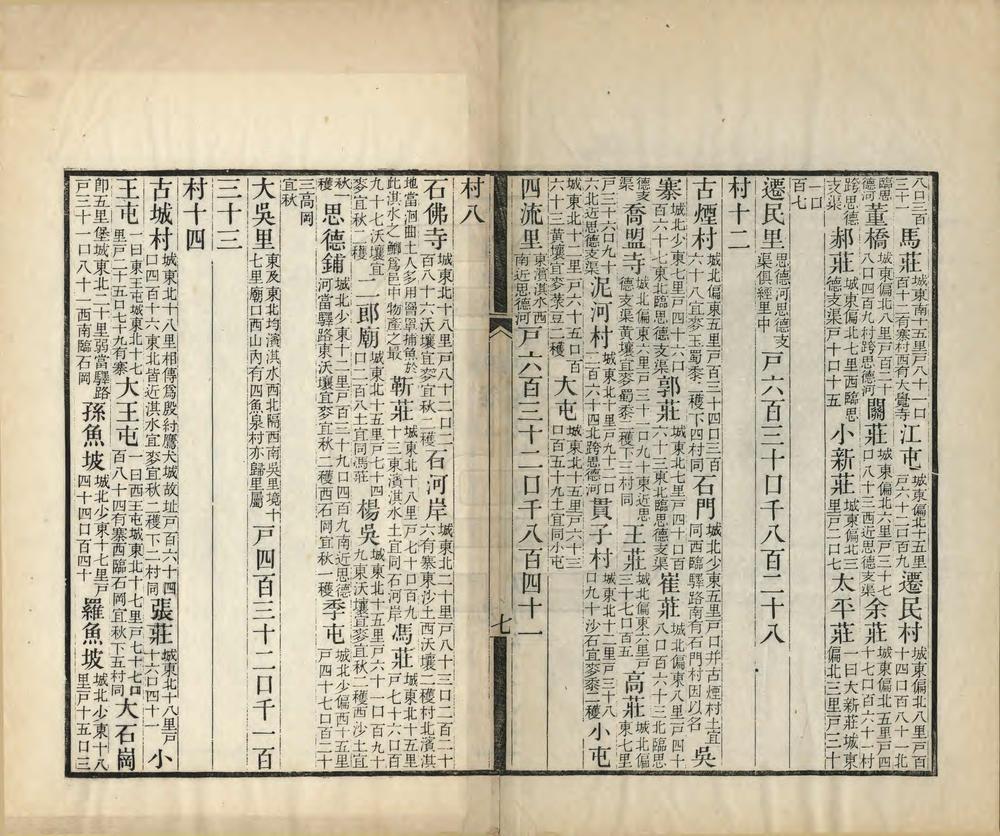 八口三百馬莊城東南十五里戸八十一口江屯城東偏北十五里遷民村城東偏北八里戸百
三十一百十二有寨村西有大覺寺戸六十二口百九十四口百八十一北
臨思董橋城東偏北八里戸百二十關莊城東偏北六里戸三十七余莊城東偏北五里戸四
德河八口四百九村跨思德河口八十三西近思德支渠十七口百六十一村
跨思德郝莊城東偏北七里西臨思小新莊城東偏北三太平莊一曰大新莊城東
支渠德支渠戸十口十五里戸二口七偏北三里戸三十
一口
百七
遷民里思德河思德支渠俱經里中戸六百三十口千八百二十八
村十二
古煙村城北偏東五里戸百三十四口三百石門城北少東五里戸口并古煙村土宜吳
六十八宜麥玉蜀黍一穫下四村同同西臨驛路南有石門村因以名
寨城北少東七里戸四十六口郭莊城東北七里戸四十口百崔莊城北偏東八里戸四十
百六十七東北臨思德支渠六十三東北臨思德支渠八口百六十三北臨思
德支喬盟寺城北偏東六里戸三十一口九十東近思王莊城北偏東六里戸高莊城北偏
渠德支渠黃壤宜麥蜀黍一穫下三村同三十七口百五東七里
戸三十六口九十泥河村城東北十里戸九十一口貫子村城東北十二里戸三十八小屯
六北近思德支渠二百六十四北跨思德河口九十沙石宜麥黍一穫
城東北十二里戸六十五口百大屯城東北十五里戸六十三
六十三黃壤宜麥菉豆二穫口百五十九土宜同小屯
四流里東濱淇水西南近思德河戸六百三十二口千八百四十一
村八
石佛寺城東北十八里戸八十二口二石河岸城東北二十里戸八十三口二百二十
百八十六沃壤宜麥宜秋一穫六有寨東沙土西沃壤二穫村北濱淇
地當迴曲土人多用罾罩捕魚於靳莊城東北十八里戸七十口百九馮莊城東北十五里
此淇水之鯽爲邑中物產之最十三東濱淇水土宜同石河岸戸七十六口百
九十七沃壤宜二郎廟城東北十五里戸七十四楊吳城東北十五里戸六十一口百九十
麥宜秋二穫口二百八土宜同馮莊九東沃壤宜麥宜秋二穫西沙土宜
秋一思德鋪城北少東十二里戸百三十九口四百九南近思德季屯城北少偏西十五里
穫河當驛路東沃壤宜麥宜秋二穫西石岡宜秋一穫戸四十七口百二十
三高岡
宜秋
大吳里東及東北均濱淇水西北隔西南吳里境十七里廟口西山內有四魚泉村亦歸里屬戸四百三十二口千一百
三十三
村十四
古城村城東北十八里相傳爲殷紂鷹犬城故址戸百六十四張莊城東北十八里戸小
口四百十六東北皆近淇水宜麥宜秋二穫下二村同十六口四十一
王屯一曰東王屯城東北十七大王屯一曰西王屯城東北十七里戸七十七口大石岡
里戸二十五口七十九有寨百八十四有寨西臨石岡宜秋下五村同
卽五里堡城東北二十里弱當驛路孫魚坡城北少東十七里戸羅魚坡城北少東十八
戸三十一口八十一西南臨石岡四十四口百四十里戸十五口三
七